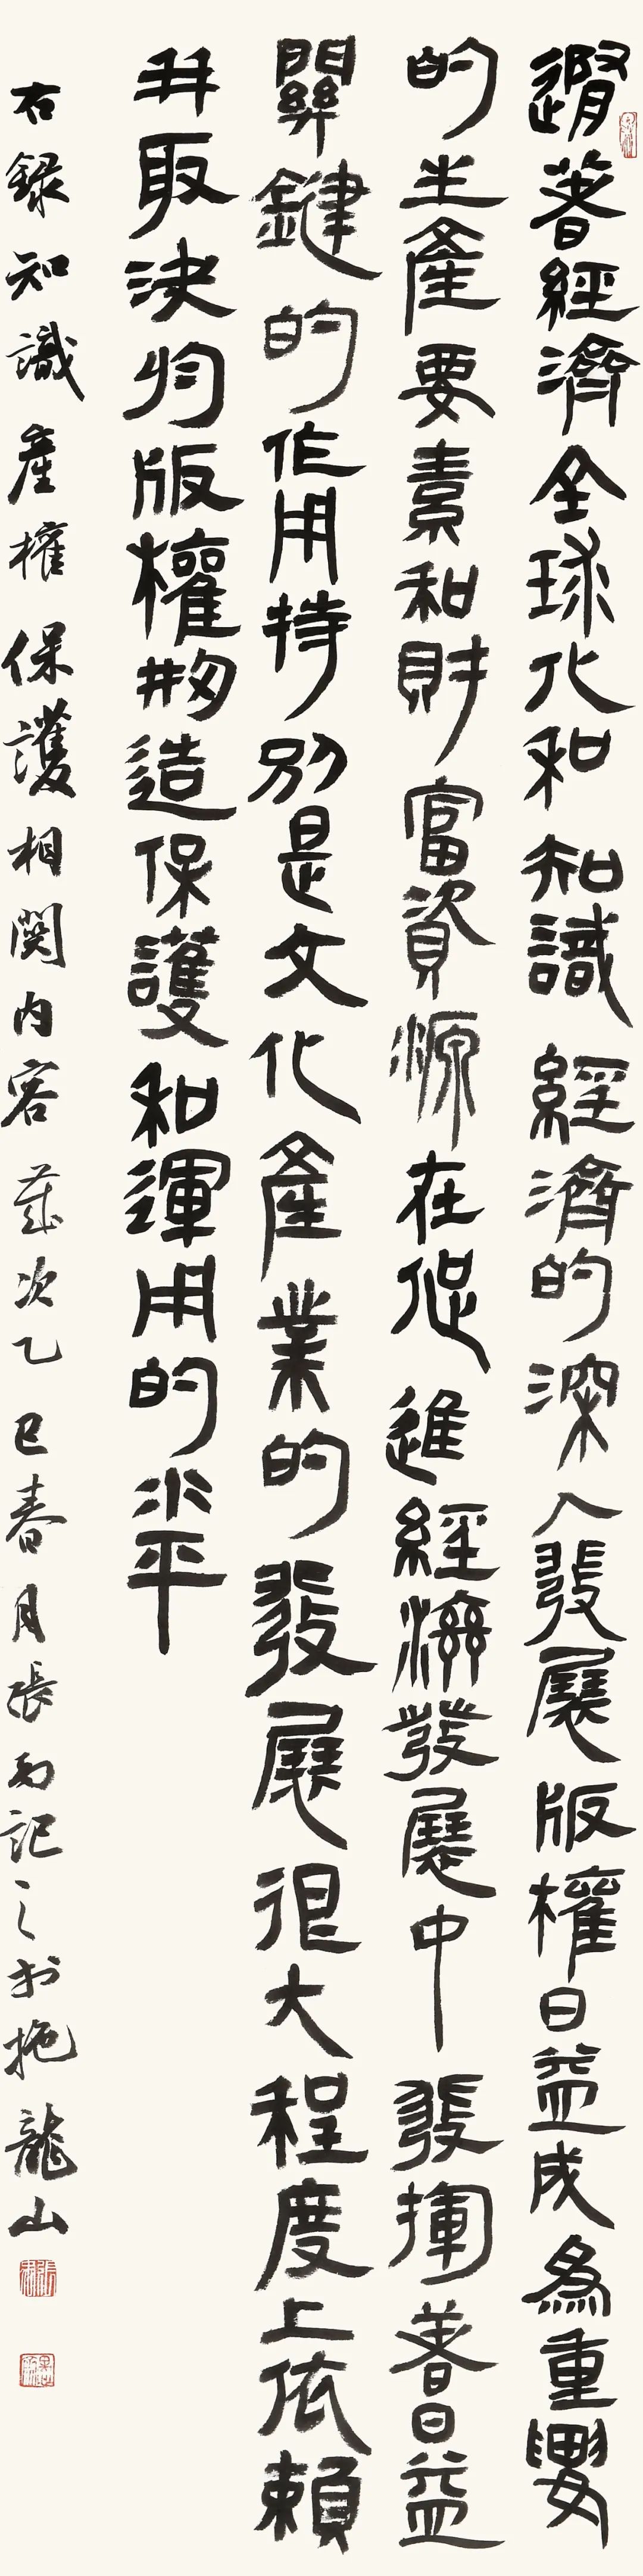 隨著經濟全球化和知識經濟的深入發展版權日益成為重要
的生產要素和財富資源在促進經濟發展中發揮著日益
關鍵的作用特別是文化產業的發展很大程度上依賴
并取決於版權刱造保護和運用的水平
右錄知識產權保護相關內容歲次乙巳春月張記之於拖龍山